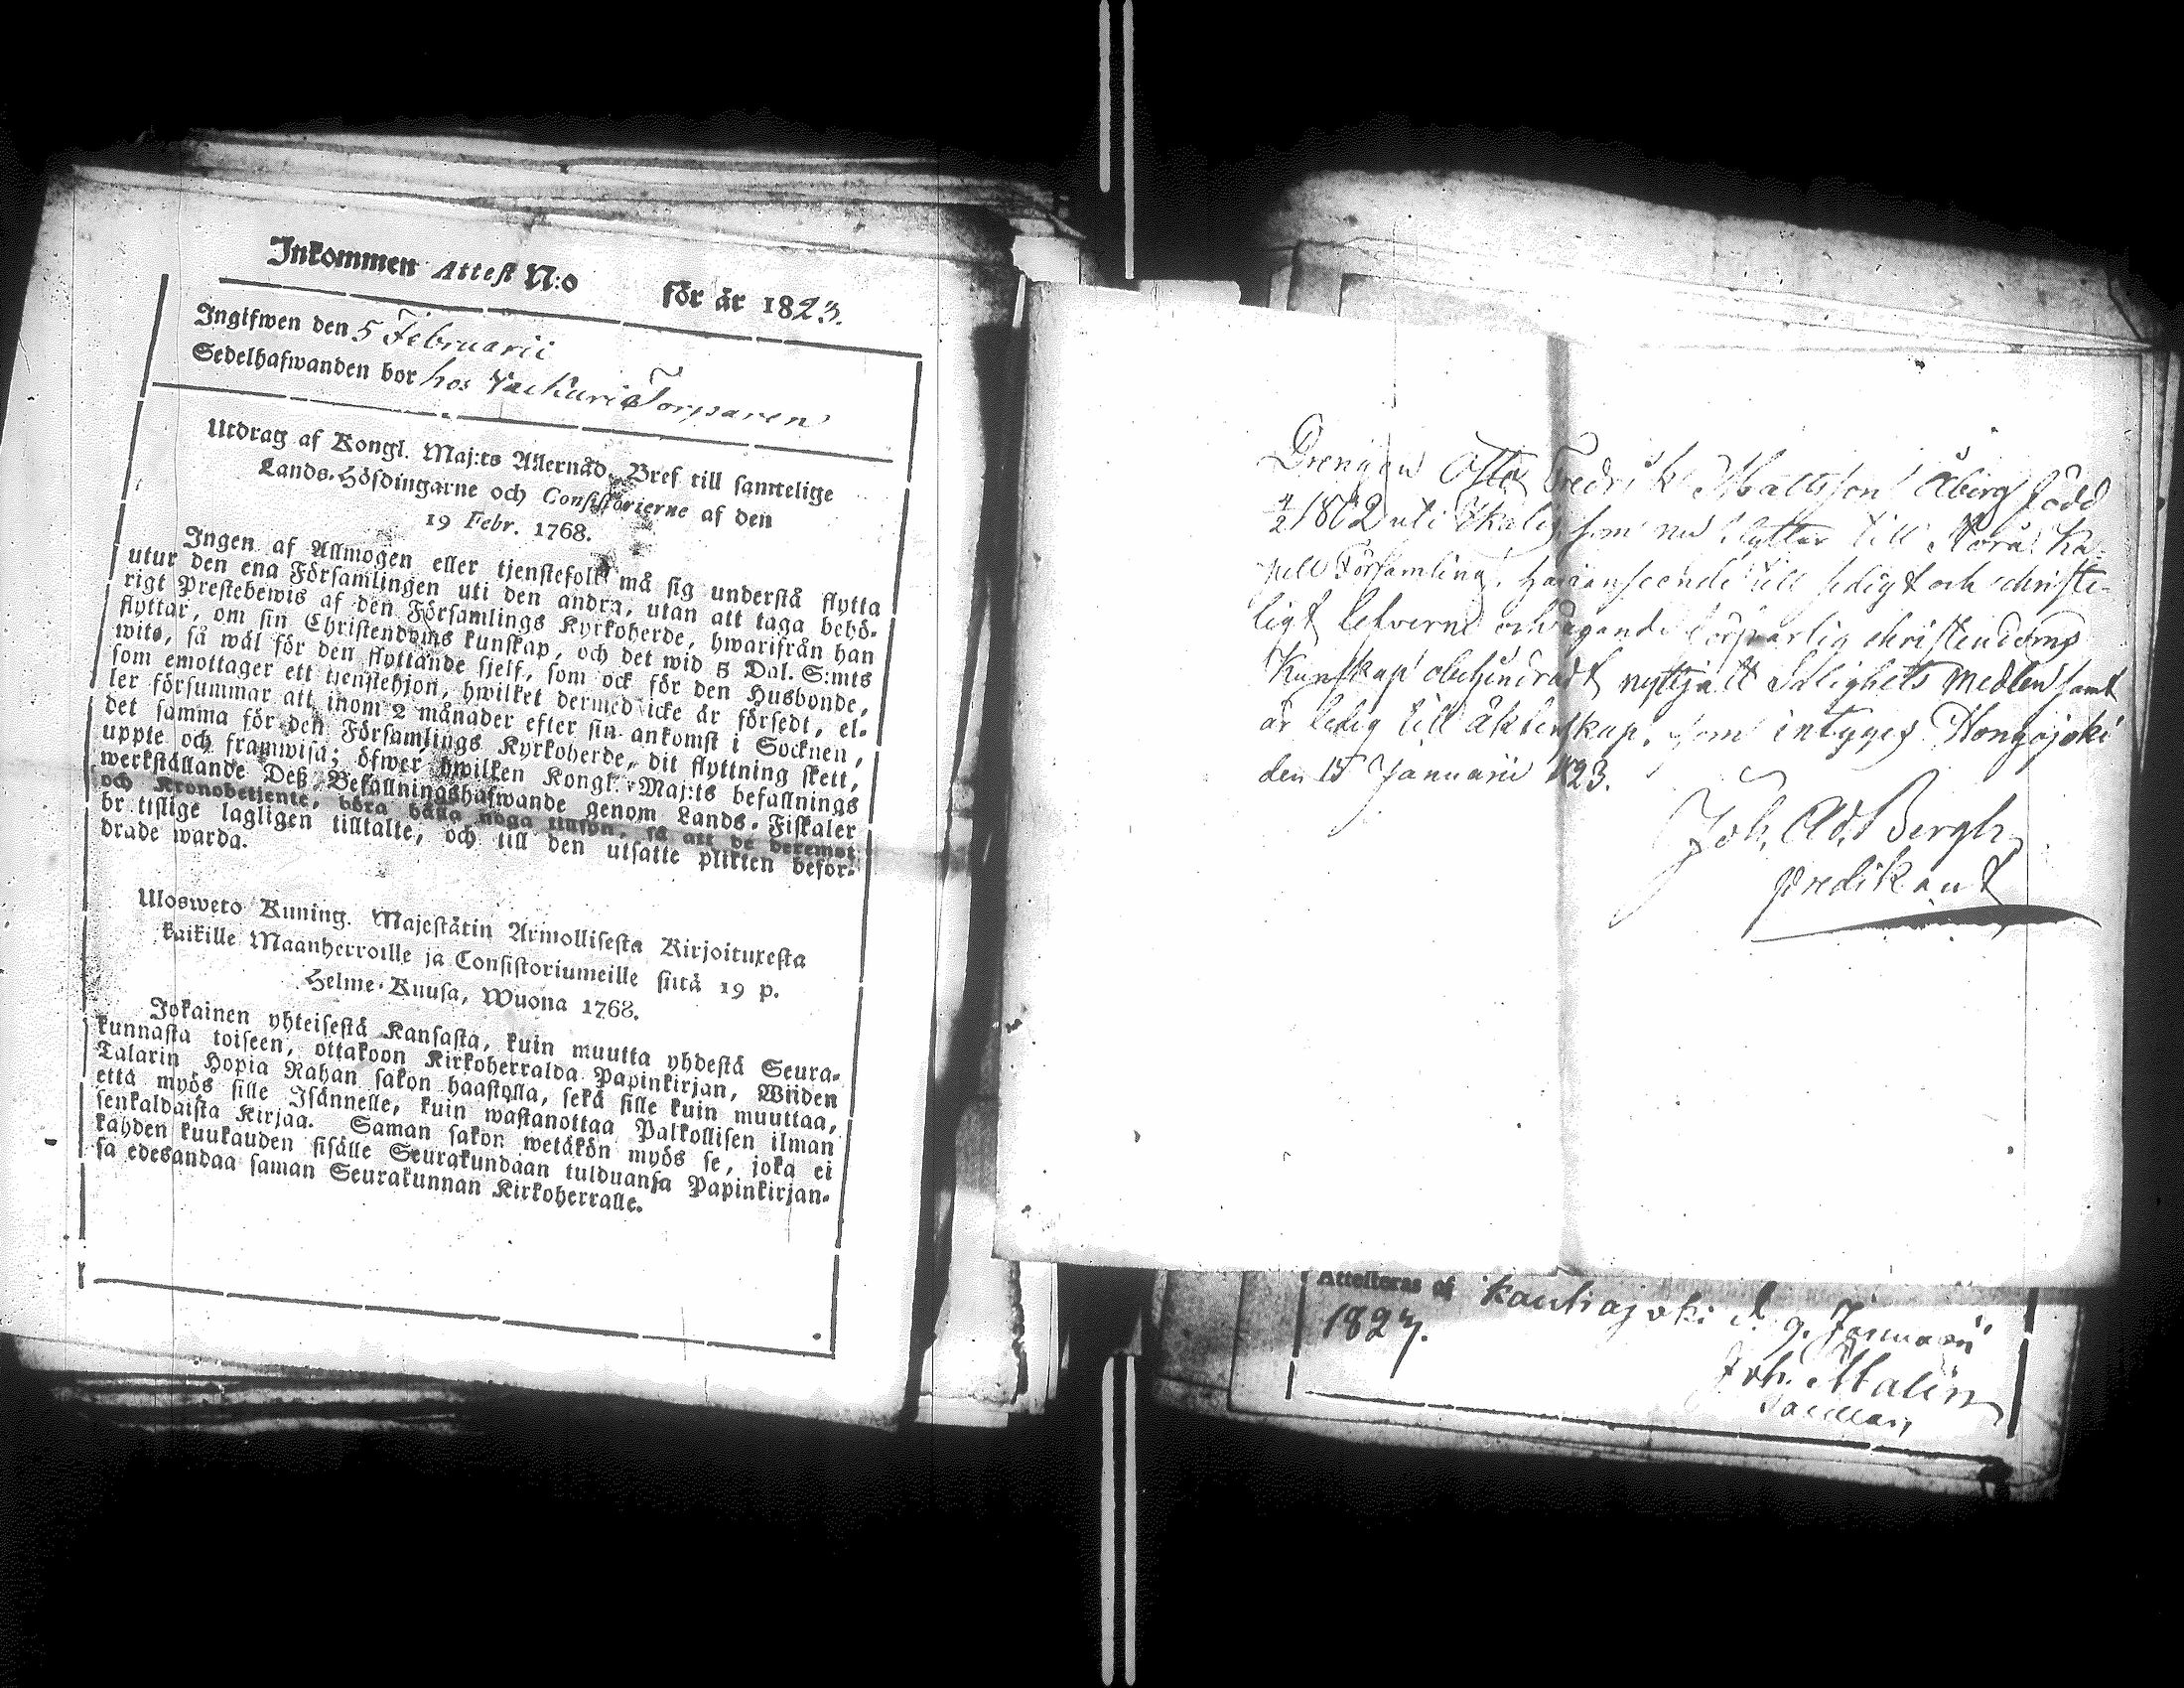 Inkommen Attest N:o för år 1823.
Ingifwen den 5 Februarii
Sedelhafwanden bor hos Torparen
Utdrag af Kongl. Maj:ts Allernåd. Bref till samtelige
Lands-Höfdingarne och Consistorierne af den
19 Febr. 1768.
Ingen af Allmogen eller tjenstefolk må sig understå flytta
utur den ena Församlingen uti den andra, utan att taga behö-
rigt Prestebewis af den Församlings Kyrkoherde, hwarifrån han
flyttar, om sin Christendoms kunskap, och det wid 5 Dal. S:mts
wite, så wäl för den flyttande sjelf, som ock för den Husbonde,
som emottager ett tjenstehjon, hwilket dermed icke är försedt, el-
ler försummar att inom 2 månader efter sin ankomst i Socknen,
det samma för den Församlings Kyrkoherde, dit flyttning skett,
uppte och framwisa; öfwer hwilken Kongl. Maj:ts befallnings
werkställande Deß Befallningshafwande genom Lands-Fiskaler
och Kronobetjente, böra hålla noga tillsyn, så att de deremot
brtislige lagligen tilltalte, och till den utsatte plikten befor-
drade warda.
Ulosweto Kuning. Majestätin Armollisesta Kirjoituxesta
kaikille Maanherroille ja Consistoriumeille siitä 19 p.
Helme-Kuusa, Wuona 1768.
Jokainen yhteisestä Kansasta, kuin muutta yhdestä Seura-
kunnasta toiseen, ottakoon Kirkoherralda Papinkirjan, Wiiden
Talarin Hopia Rahan sakon haastolla, sekä sille kuin muuttaa,
että myös sille Isännelle, kuin wastanottaa Palkollisen ilman
senkaldaista Kirjaa. Saman sakon wetäkön myös se, joka ei
kahden kuukauden sisälle Seurakundaan tulduansa Papinkirjan-
sa edesandaa saman Seurakunnan Kirkoherralle.
Drengen Fredrik Mattsson Åberg född
4/2 1802 uti som nu flyttar till Norå Ka-
pell Församling, har i anseende till sedigt och christe-
ligt lefverne och ägande försvarlig christendoms
Kunskap obehindradt nyttjatt Salighets medlen samt
är ledig till äktenskap, som intygas Hongojoki
den 15 Januarii 1823.
Joh. Ad. Bergh
predikant
Attesteras af Kauhajoki d. 9. Januarii
1823.
Joh. Malin